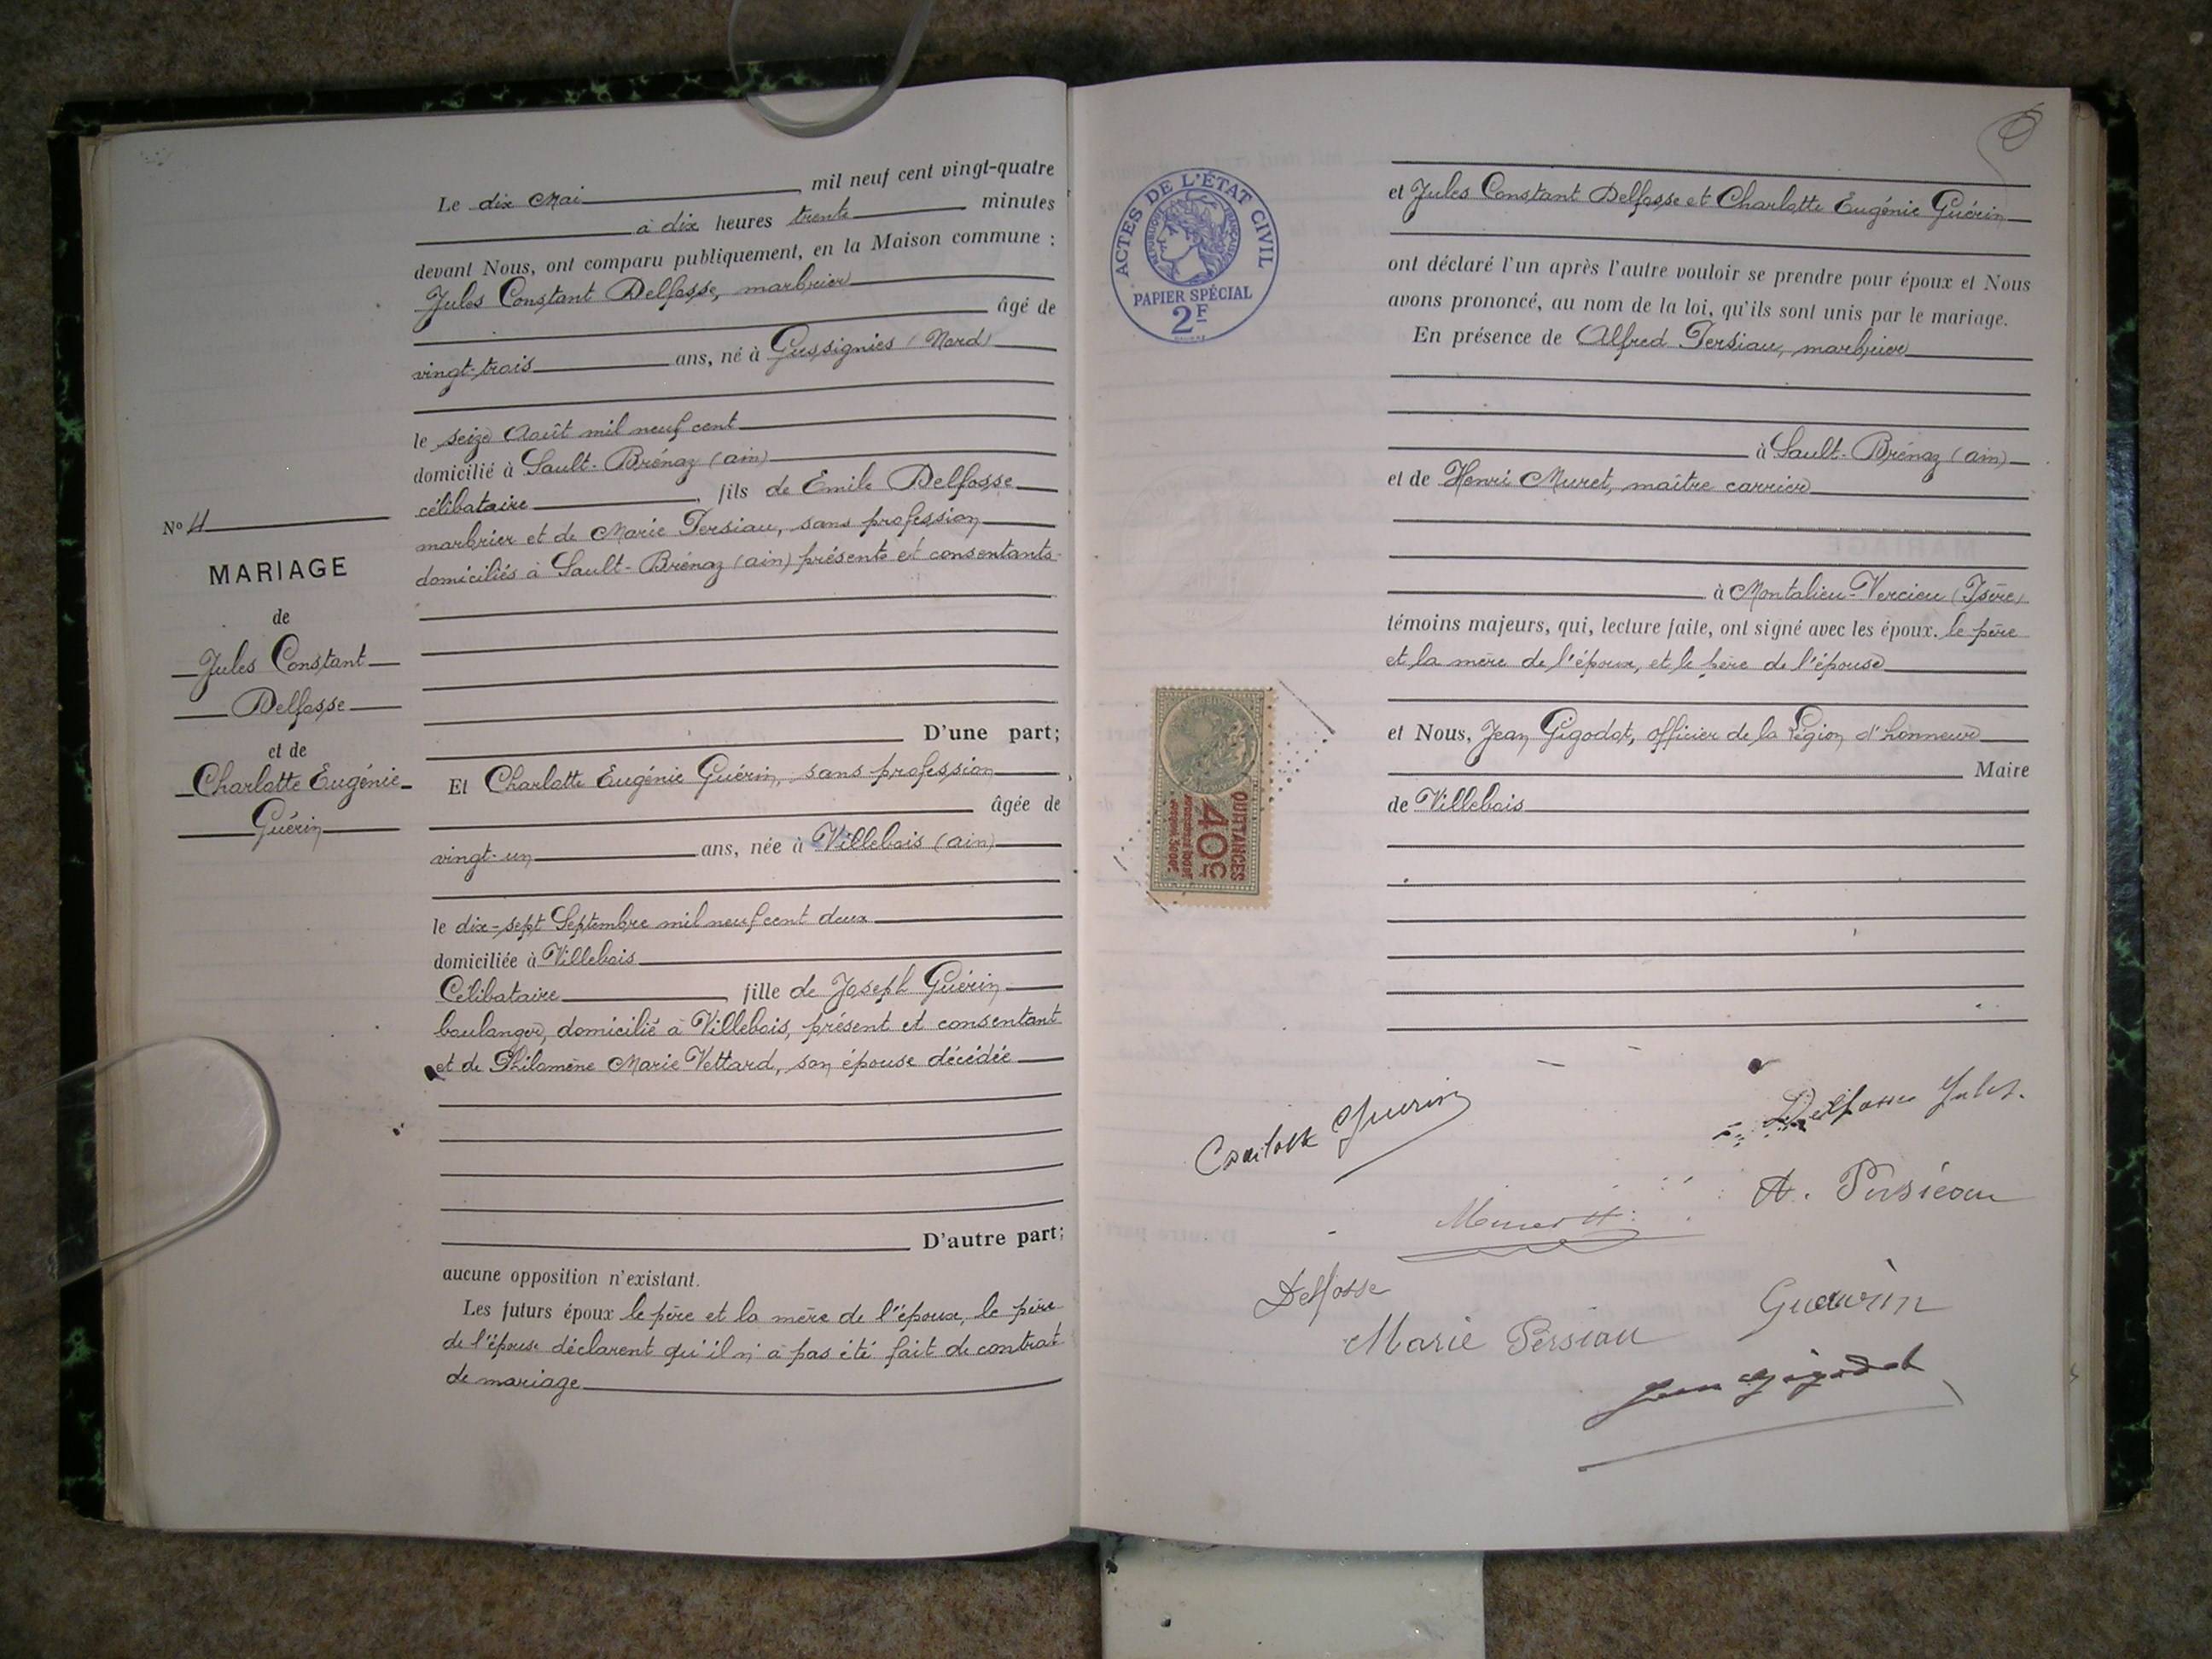 Le dix Mai mil neuf cent vingt-quatre
à dix heures trente minutes
devant Nous, ont comparu publiquement, en la Maison commune :
Jules Constant Delfosse, marbrier
âgé de
vingt-trois ans, né à Gussignies (Nord)
le seize Août mil neuf cent
domicilié à Sault-Brénaz (ain)
célibataire, fils de Emile Delfosse
marbrier et de Marie Persiau, sans profession
domiciliés à Sault-Brénaz (ain) présents et consentants
No 4
MARIAGE
de
Jules Constant
Delfosse
et de
Charlotte Eugénie
Guérin
D'une part;
Et Charlotte Eugénie Guérin, sans profession
âgée de
vingt-un ans, née à Villebois (ain)
le dix-sept Septembre mil neuf cent deux
domiciliée à Villebois
Célibataire, fille de Joseph Guérin
boulanger, domicilié à Villebois, présent et consentant
et de Philomène Marie Vettard, son épouse décédée
D'autre part;
aucune opposition n'existant.
Les futurs époux le père et la mère de l'époux, le père
de l'épouse déclarent qu'il n'a pas été fait de contrat
de mariage
ACTES DE L'ÉTAT CIVIL
RÉPUBLIQUE FRANÇAISE
PAPIER SPÉCIAL
2F
et Jules Constant Delfosse et Charlotte Eugénie Guérin
ont déclaré l'un après l'autre vouloir se prendre pour époux et Nous
avons prononcé, au nom de la loi, qu'ils sont unis par le mariage.
En présence de Alfred Persiau, marbrier
à Sault-Brénaz (ain)
et de Henri Muret, maître carrier
à Montalieu-Vercieu (Isère)
témoins majeurs, qui, lecture faite, ont signé avec les époux. le père
et la mère de l'époux, et le père de l'épouse
et Nous, Jean Gigodot, officier de la Légion d'honneur
Maire
de Villebois
QUITTANCES
40c
Charlotte Guérin
Delfosse Jules.
A. Persieau
Muret H.
Delfosse
Guerin
Marie Persiau
Jean Gigodot